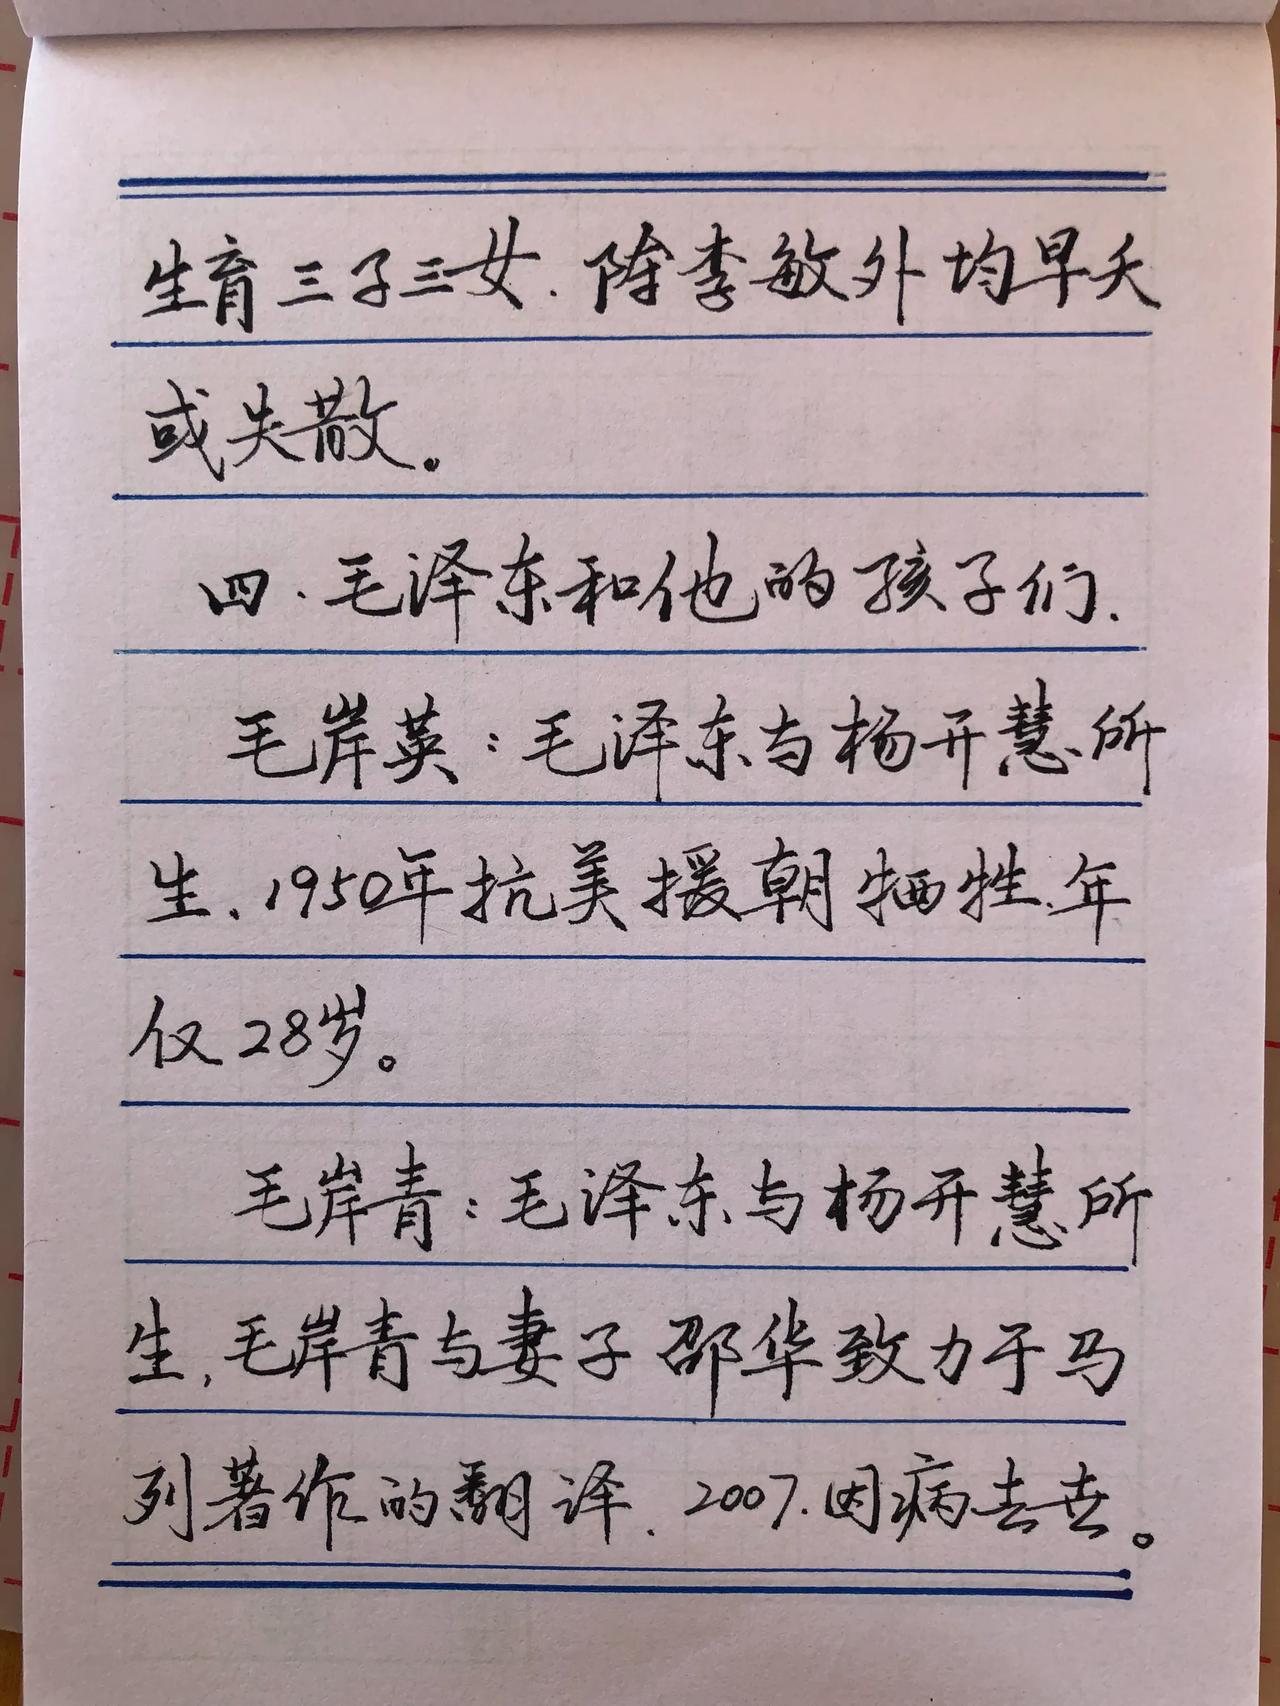 生育三子三女.除李敏外均早夭
或失散。
四.毛泽东和他的孩子们.
毛岸英:毛泽东与杨开慧所
生、1950年抗美援朝牺牲.年
仅28岁。
毛岸青:毛泽东与杨开慧所
生,毛岸青与妻子邵华致力于马
列著作的翻译、2007.因病去世。